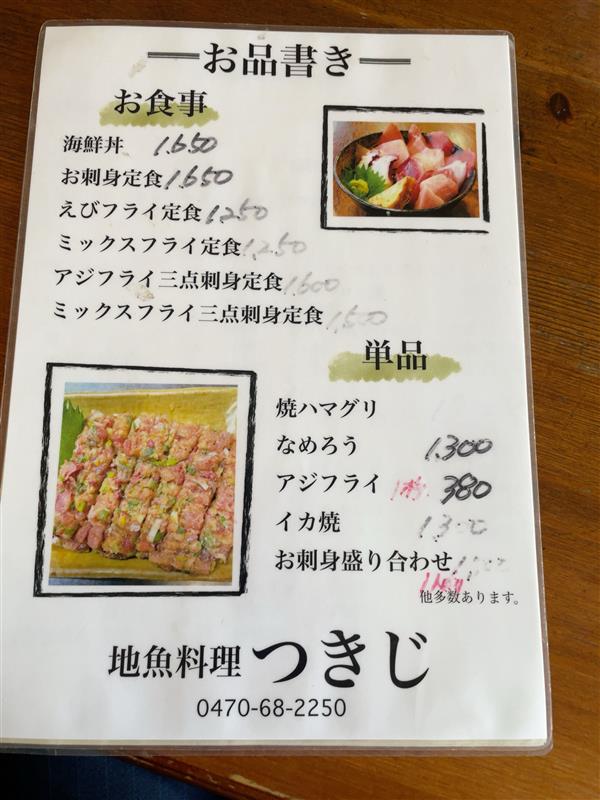 お品書き
お食事
海鮮丼 1.650
お刺身定食 1.650
えびフライ定食 1,250
ミックスフライ定食 1,250
アジフライ三点刺身定食 1,600
ミックスフライ三点刺身定食 1,500
単品
焼ハマグリ
なめろう 1.300
アジフライ 1枚 380
イカ焼 1300
お刺身盛り合わせ
他多数あります。
地魚料理 つきじ
0470-68-2250